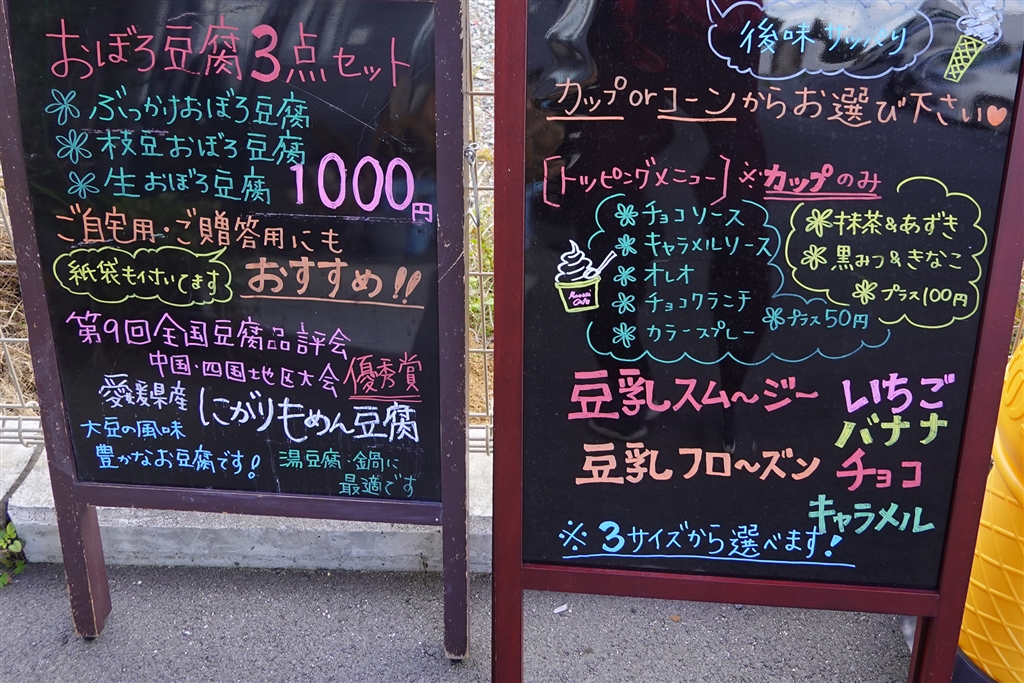 おぼろ豆腐3点セット
ぶっかけおぼろ豆腐
枝豆おぼろ豆腐
生おぼろ豆腐
1000円
ご自宅用・ご贈答用にも
紙袋も付いてます
おすすめ!!
第9回全国豆腐品評会
中国・四国地区大会
優秀賞
愛媛県産
にがりもめん豆腐
大豆の風味
豊かなお豆腐です!
湯豆腐・鍋に
最適です
後味サッパリ
カップorコーンからお選び下さい
[トッピングメニュー]※カップのみ
チョコソース
キャラメルソース
オレオ
チョコクランチ
カラースプレー
プラス50円
抹茶&あずき
黒みつ&きなこ
プラス100円
豆乳スム〜ジー
豆乳フロ〜ズン
いちご
バナナ
チョコ
キャラメル
※3サイズから選べます!